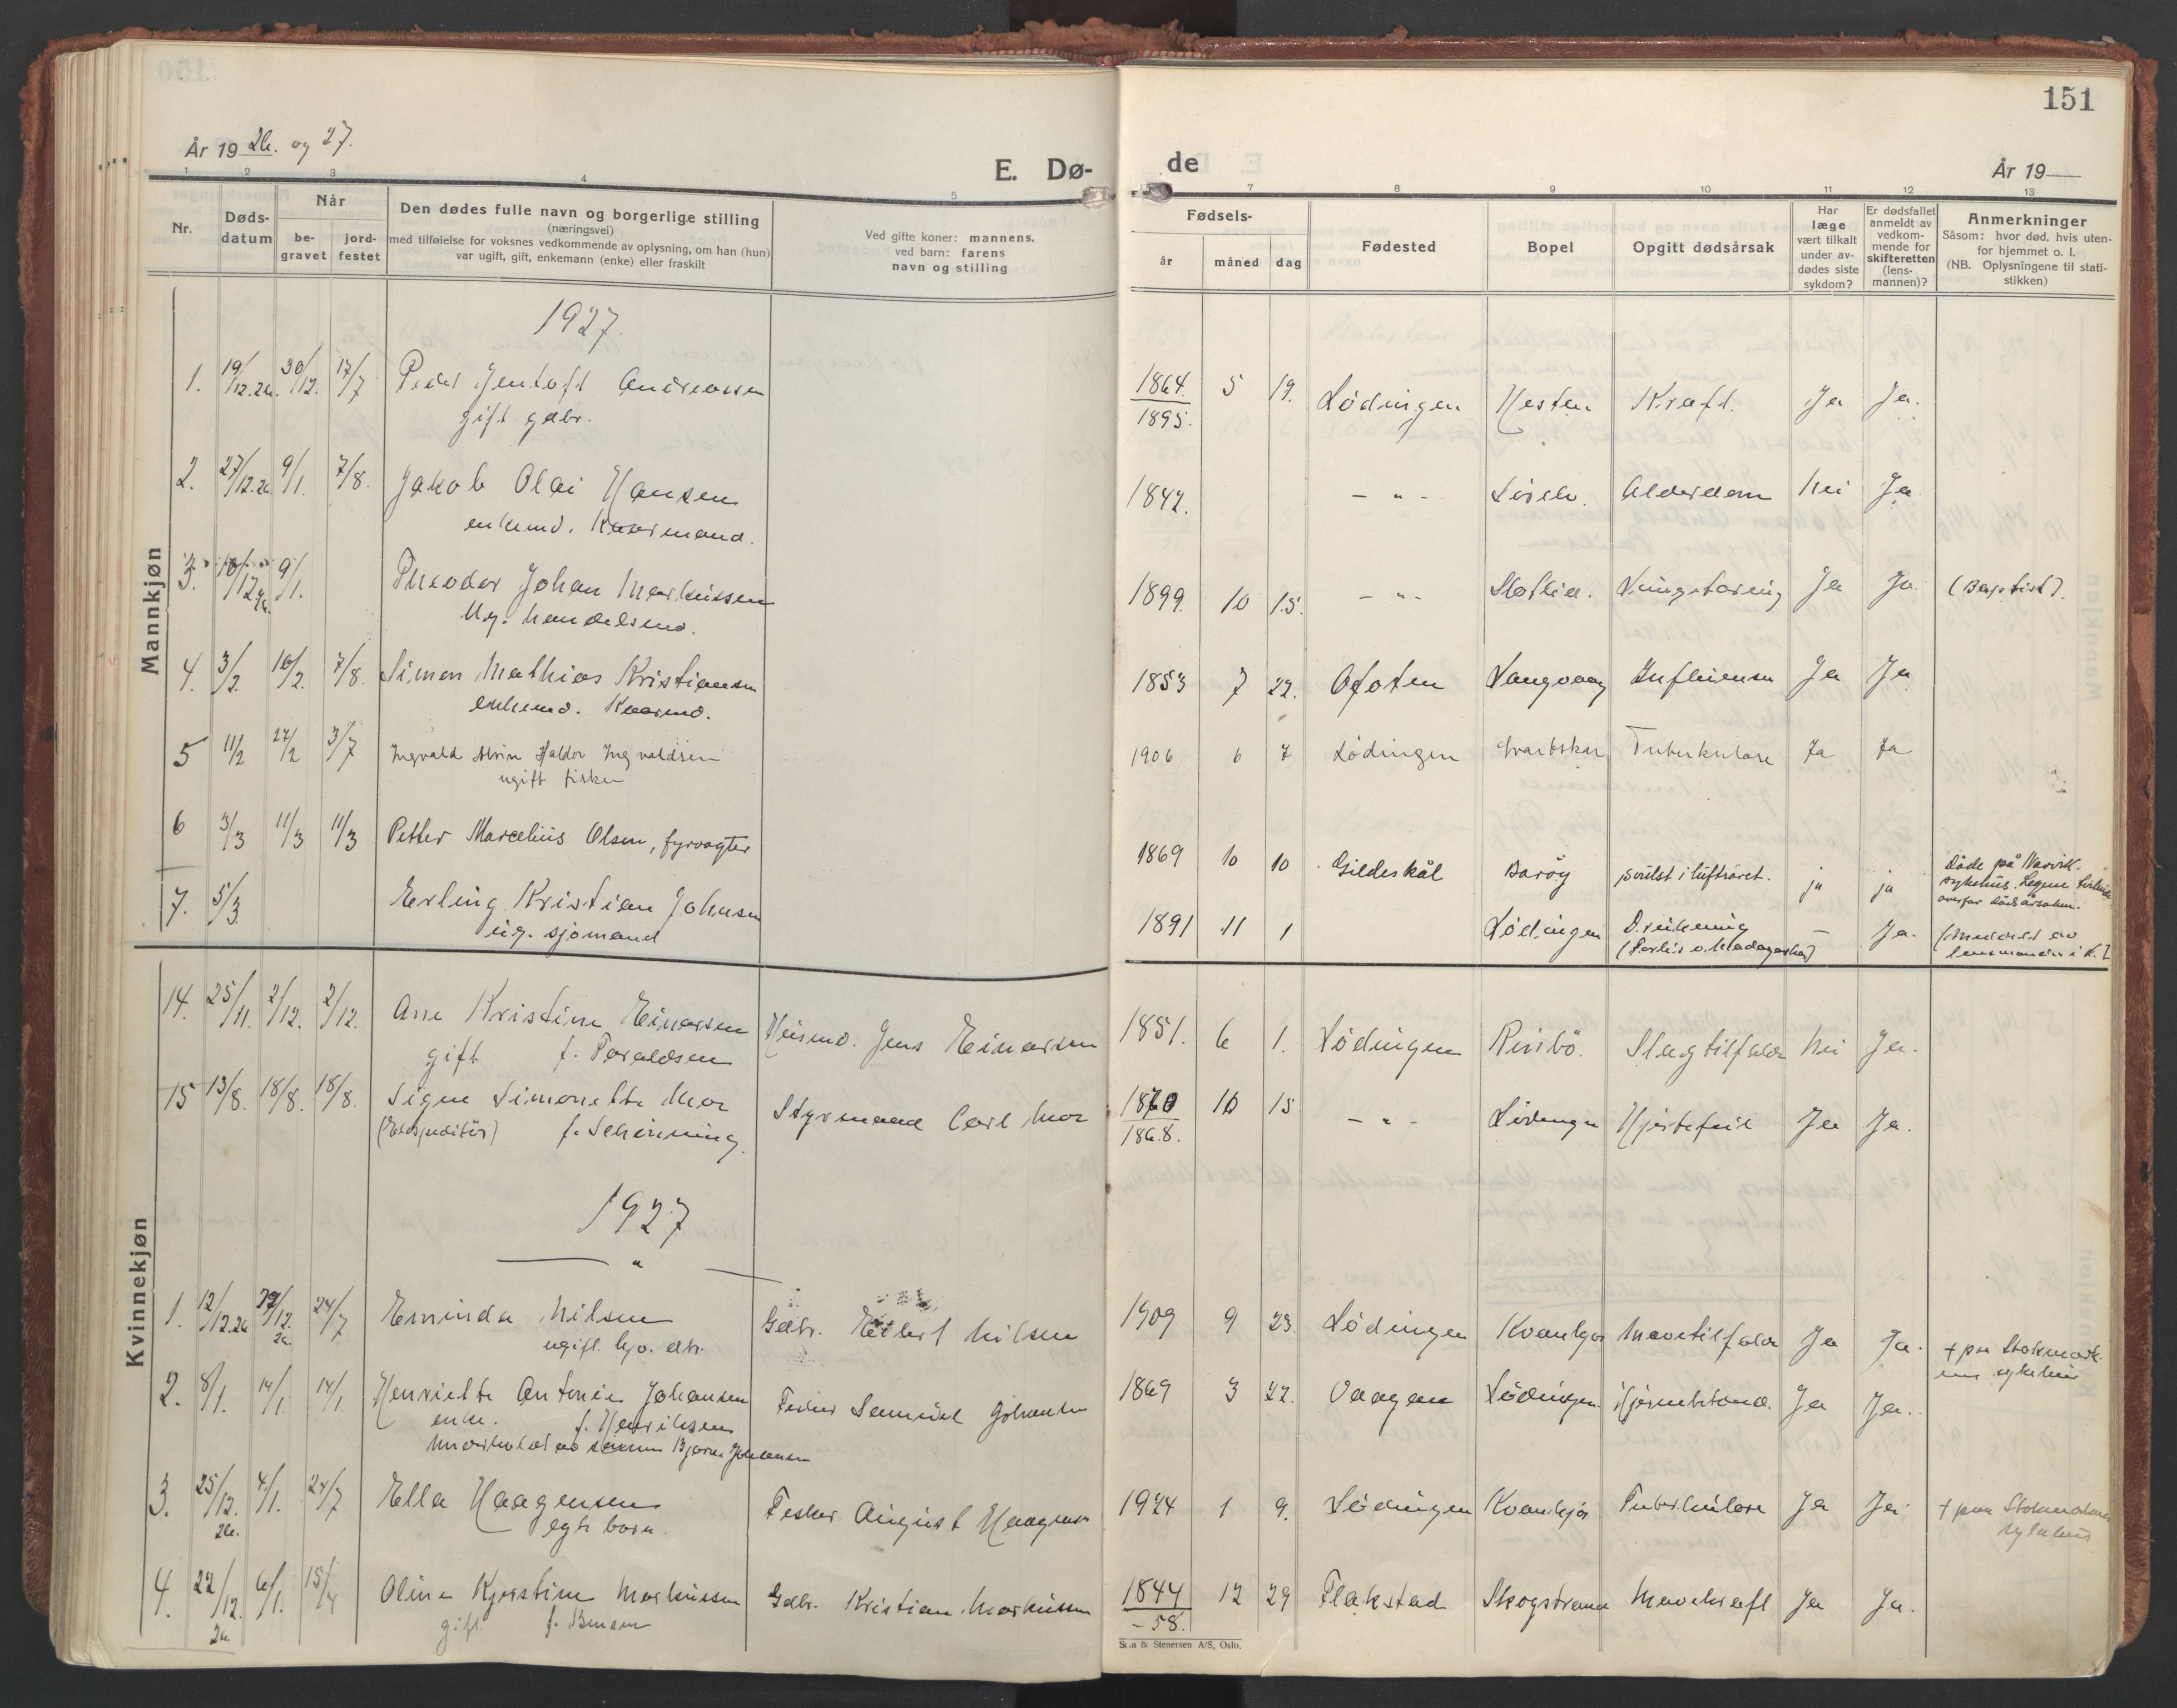 151
År 19 26. og 27.
E. Dø-
de
År 19
1 2 3 4 5 7 8 9 10 11 12 13
Nr.
Døds-
datum
Når
be-
gravet
jord-
festet
Den dødes fulle navn og borgerlige stilling
(næringsvei)
med tilføielse for voksnes vedkommende av oplysning, om han (hun)
var ugift, gift, enkemann (enke) eller fraskilt
Ved gifte koner: mannens,
ved barn: farens
navn og stilling
Fødsels-
år måned dag
Fødested
Bopel
Opgitt dødsårsak
Har
læge
vært tilkalt
under av-
dødes siste
sykdom?
Er dødsfallet
anmeldt av
vedkom-
mende for
skifteretten
(lens-
mannen)?
Anmerkninger
Såsom: hvor død, hvis uten-
for hjemmet o. l.
(NB. Oplysningene til stati-
stikken)
Mannkjøn
1927.
1. 19/12.26. 30/12. 17/7 Peder Jentoft Andreassen 1864. 5 19. Lødingen Hesten Kræft. Ja Ja.
gift gdbr. 1895.
2. 27/12.26 9/1. 7/8. Jakob Olai Hansen 1842. - " - Alderdom Nei Ja
enkemd. Kaarmand.
3. 10/12 26. 9/1. Theodor Johan Markussen 1899. 10 15. - " - Ja Ja. (Baptist).
Ug. handelsmd.
4. 3/2. 16/2. 7/8. Simon Mathias Kristiansen 1853 7 22. Ofoten Langvaag Influensa Ja Ja
enkemd. Kaarmd.
5 11/2 27/2 3/7 Ingvald Alvin Haldor Ingvaldsen 1906 6 7 Lødingen Svartskar Tuberkulose Ja Ja
ugift fisker
6 3/3 11/3 11/3 Petter Marcelius Olsen, fyrvogter 1869 10 10 Gildeskål Barøy svulst i luftrøret. ja ja
Døde på Narvik
sykehus. Legene
overfor dødsårsaken.
7. 5/3 Erling Kristian Johnsen 1891 11 1 Lødingen Drukning - Ja.
ug. sjømand
(Forlis v. Madagaskar)
Kvinnekjøn
14. 25/11. 2/12. 2/12. Ane Kristine Einarsen Husmd. Jens Einarsen 1851. 6 1. Lødingen Rinbö. Slagtilfælde Nei Ja.
gift f. Toraldsen
15 13/8. 18/8. 18/8. Signe Simonette Moe Styrmand Carl Moe 1870 10 15 - " - Lødingen Hjertefeil Ja Ja.
f. Schönning. 1868.
1927
"
1. 12/12.26 29/12. 26. 24/7 Eminda Nilsen Gdbr. Edvart Nilsen 1909 9 23. Lødingen Kvankjos Mavetilfælde Ja Ja. + paa Stokmark-
ugift hjv. dtr. nes sykehus
2. 8/1. 14/1. 14/1. Henriette Antonie Johansen Fisker Samuel Johansen 1869 3 22. Vaagan Lødingen. Ja Ja.
enke. f. Henriksen
Underholdt av sønnen Bjarne Johansen
3. 25/12. 26. 4/1. 24/7 Ella Haagensen Fisker August Haagensen 1924 1 9. Lødingen Kvankjos Tuberkulose Ja Ja + paa Stokmarknes
egte barn. sykehus
4. 22/12. 26. 6/1. 15/4 Oline Kjerstine Markussen Gdbr. Kristian Markussen 1844 12 29 Flakstad Skogstrand Mavekræft Ja Ja.
gift. -58.
Sem & Stenersen A/S, Oslo.